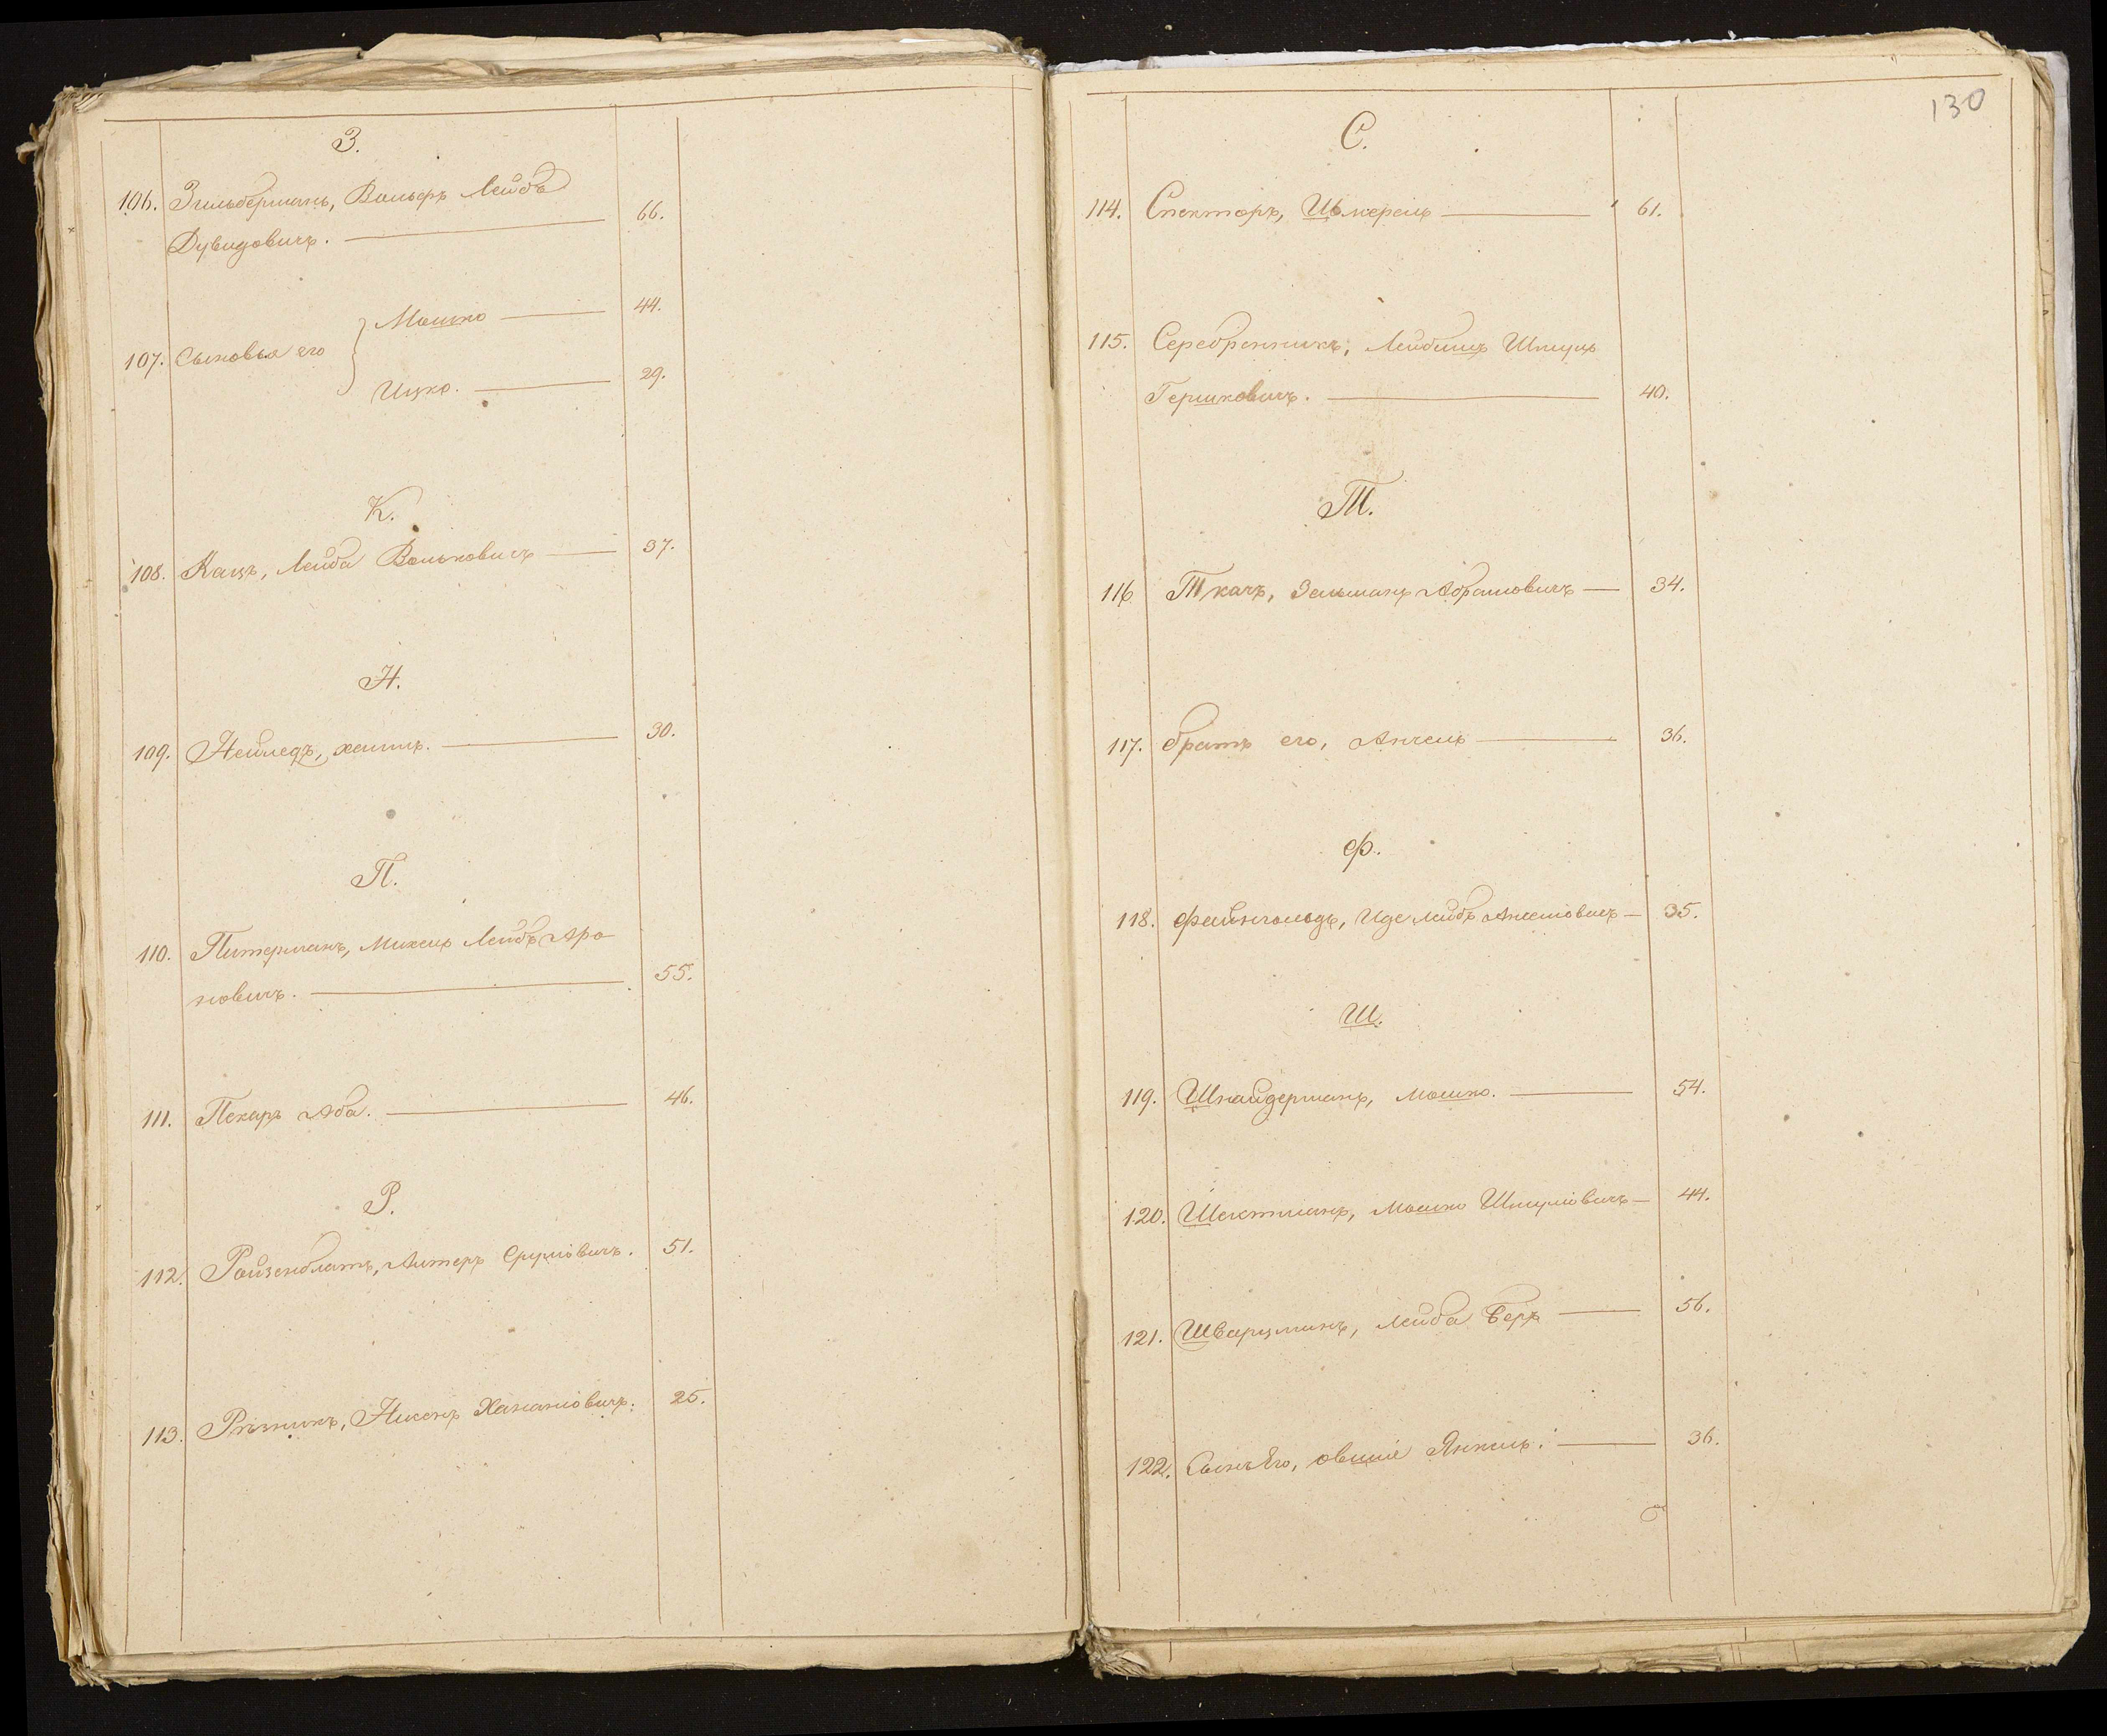 З.
106. Зильберманъ, Вольфъ Лейбъ
Дувидовичъ. 66.
Мошко 44.
107. Сыновья его
Ицко. 29.
К.
108. Кацъ, Лейба Вольковичъ 37.
Н.
109. Нейледъ, хаимъ. 30.
П.
110. Питерманъ, Михель Лейбъ Аро
новичъ. 55.
111. Пекарь Аба. 46.
Р.
112. Ройзенблатъ, Альтеръ Сруловичъ. 51.
113. Рѣзникъ, Нисонъ Ханановичъ. 25.
130
С.
114. Спекторъ, Шмерель 61.
115. Серебренникъ, Лейбишъ Шмуль
Гершковичъ. 40.
Т.
116 Ткачъ, Зельманъ Абрамовичъ 34.
117. братъ его, Анчель 36.
Ф.
118. Файнгольдъ, Иде Лейбъ 35.
Ш.
119. Шнайдерманъ, Мошко. 54.
120. Шехтманъ, Мошко Шмулёвичъ 44.
121. Шварцманъ, Лейба Беръ 56.
122. Сынъ Его, овшiя Янкель. 36.